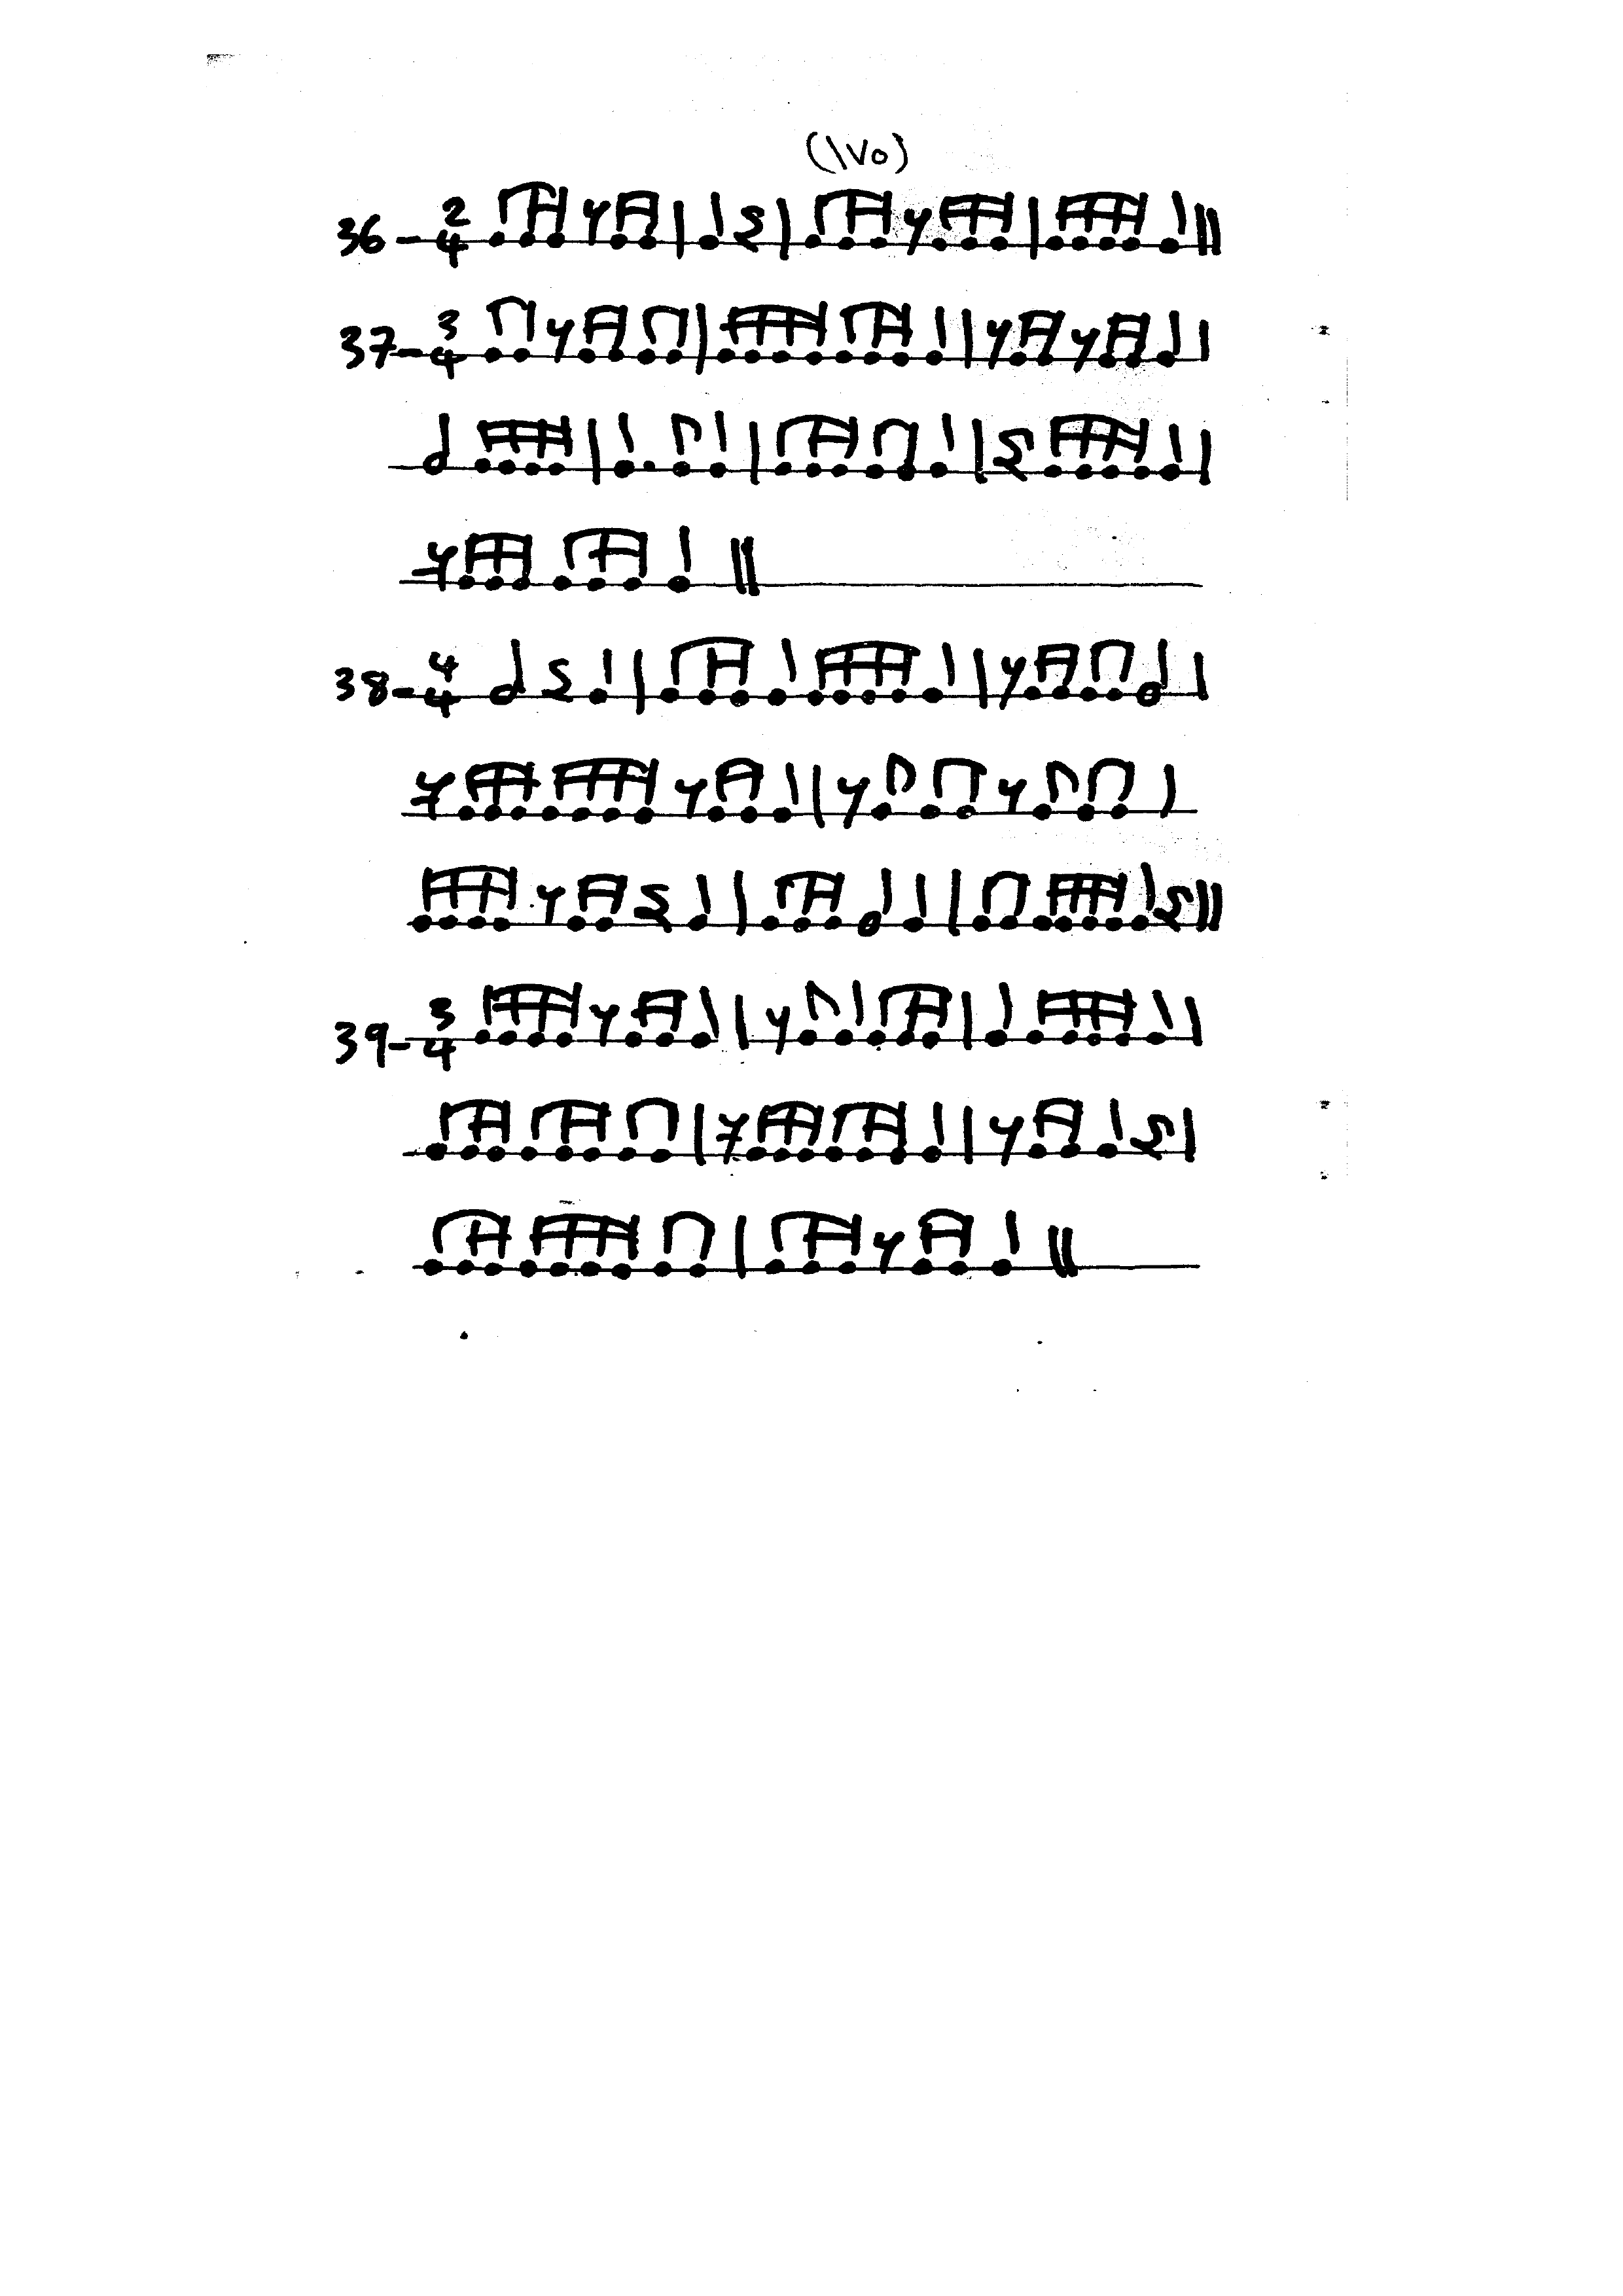 (١٧٥)
36 - 2/4
37 - 3/4
38 - 4/4
39 - 3/4